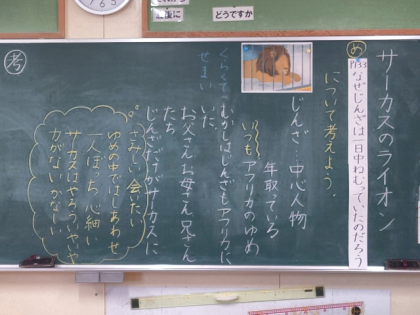 サーカスのライオン
め
P133
なぜじんざは一日中ねむっていたのだろう
について考えよう。
じんざ…中心人物
年取っている
いつもアフリカのゆめ
むかしはじんざもアフリカに
いた。
お父さん お母さん 兄さん
たち
じんざだけがサーカスに
くらくて
せまい
さみしい 会いたい
ゆめの中ではしあわせ
一人ぼっち 心細い
サーカスはやろういや
力がない かなしい
考
どうですか